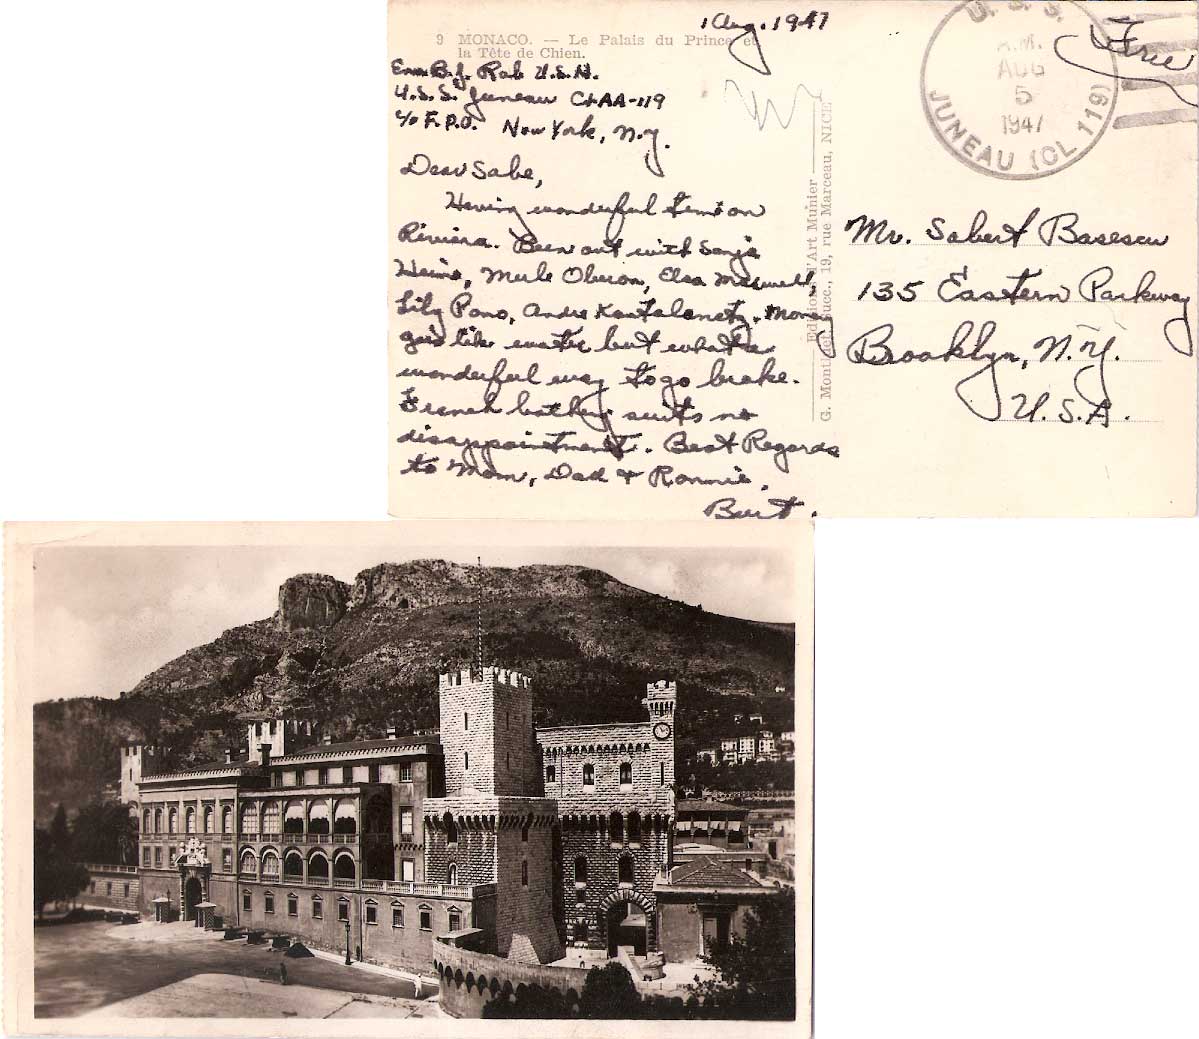 1 Aug. 1947
9 MONACO. — Le Palais du Prince et
la Tête de Chien.
Ens. B.J. Rab U.S.N.
U.S.S. Juneau CLAA-119
c/o F.P.O. New York, N.Y.
Dear Sabe,
Having wonderful time on
Riviera. Been out with Sonja
Heine, Merle Oberon, Elsa Maxwell,
Lily Pons, Andre Kostelanetz. Money
goes like water but what a
wonderful way to go broke.
French bathing suits no
disappointment. Best Regards
to Mom, Dad & Ronnie.
Burt.
Editions d'Art Munier
G. succ., 19, rue Marceau, NICE
U.S.S.
JUNEAU (CL 119)
A.M.
AUG
5
1947
Free
Mr. Sabert Basescu
135 Eastern Parkway
Brooklyn, N.Y.
U.S.A.